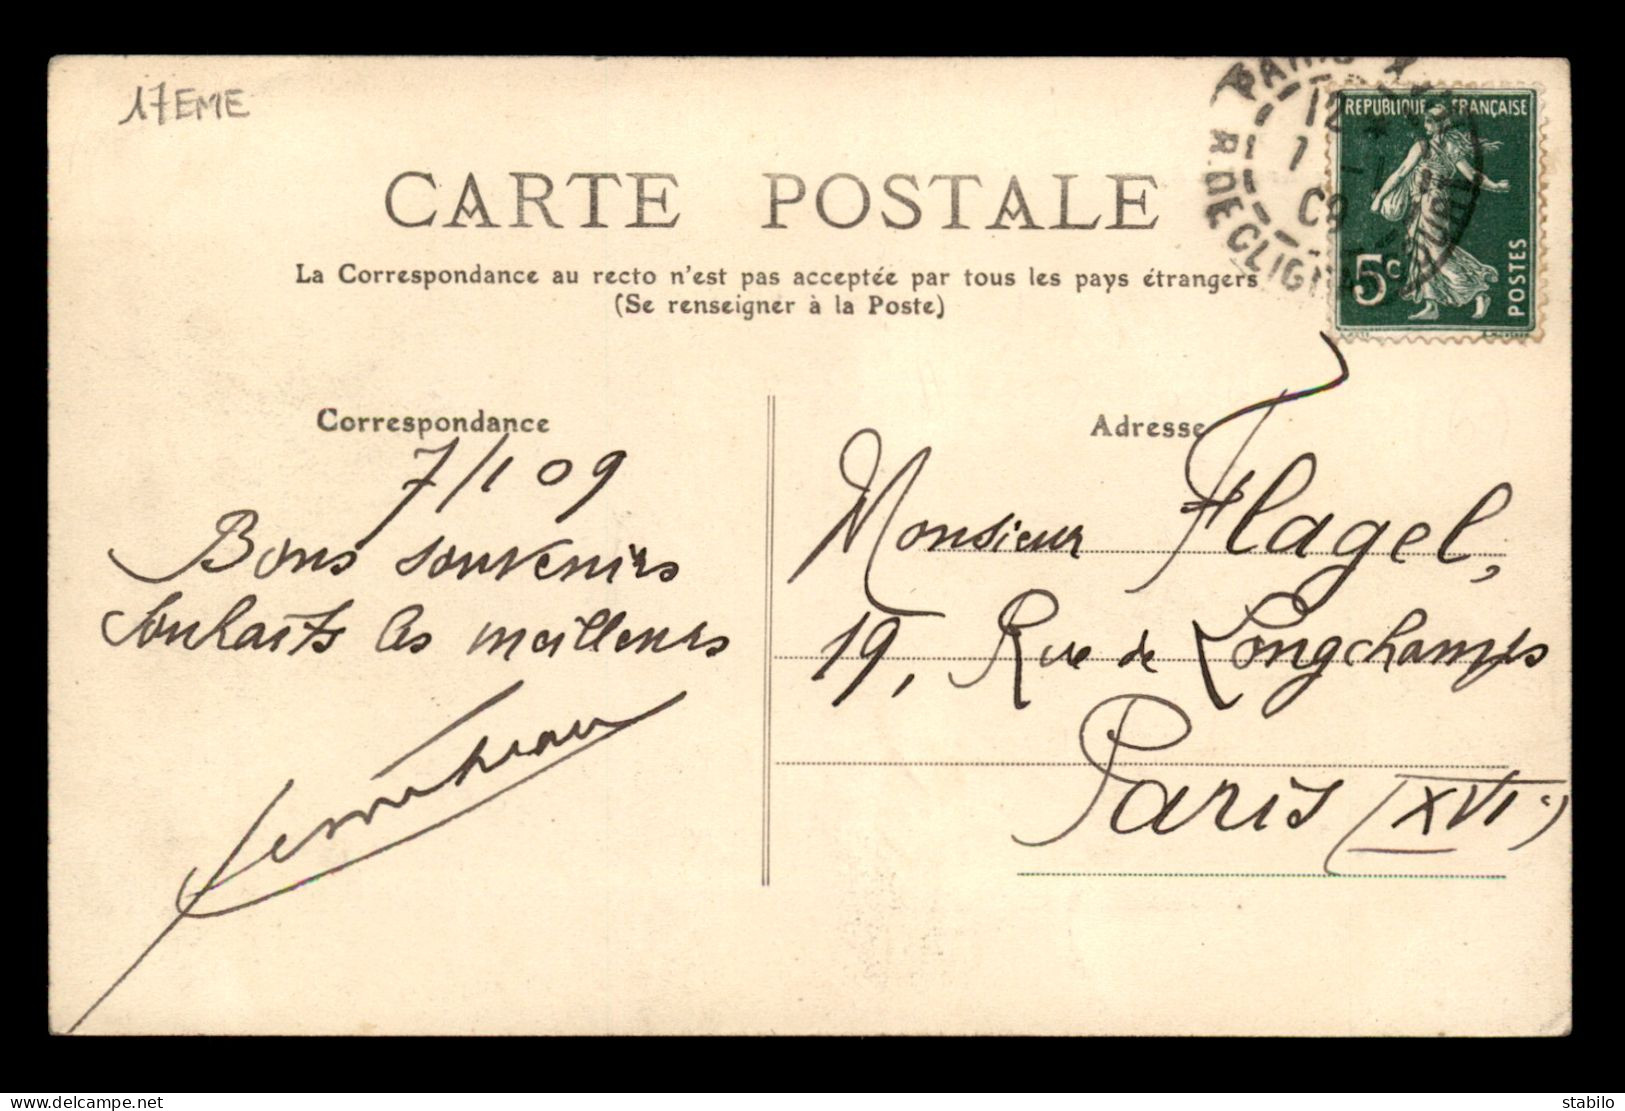 17EME
CARTE POSTALE
La Correspondance au recto n'est pas acceptée par tous les pays étrangers
(Se renseigner à la Poste)
PARIS
R. DE CLIGNA
12
7 -1
09
REPUBLIQUE FRANÇAISE
5c
POSTES
Correspondance
7/1 09
Bons souvenirs
Souhaits les meilleurs
Adresse
Monsieur Flagel,
19, Rue de Longchamps
Paris (XVIe)
www.delcampe.net
stabilo